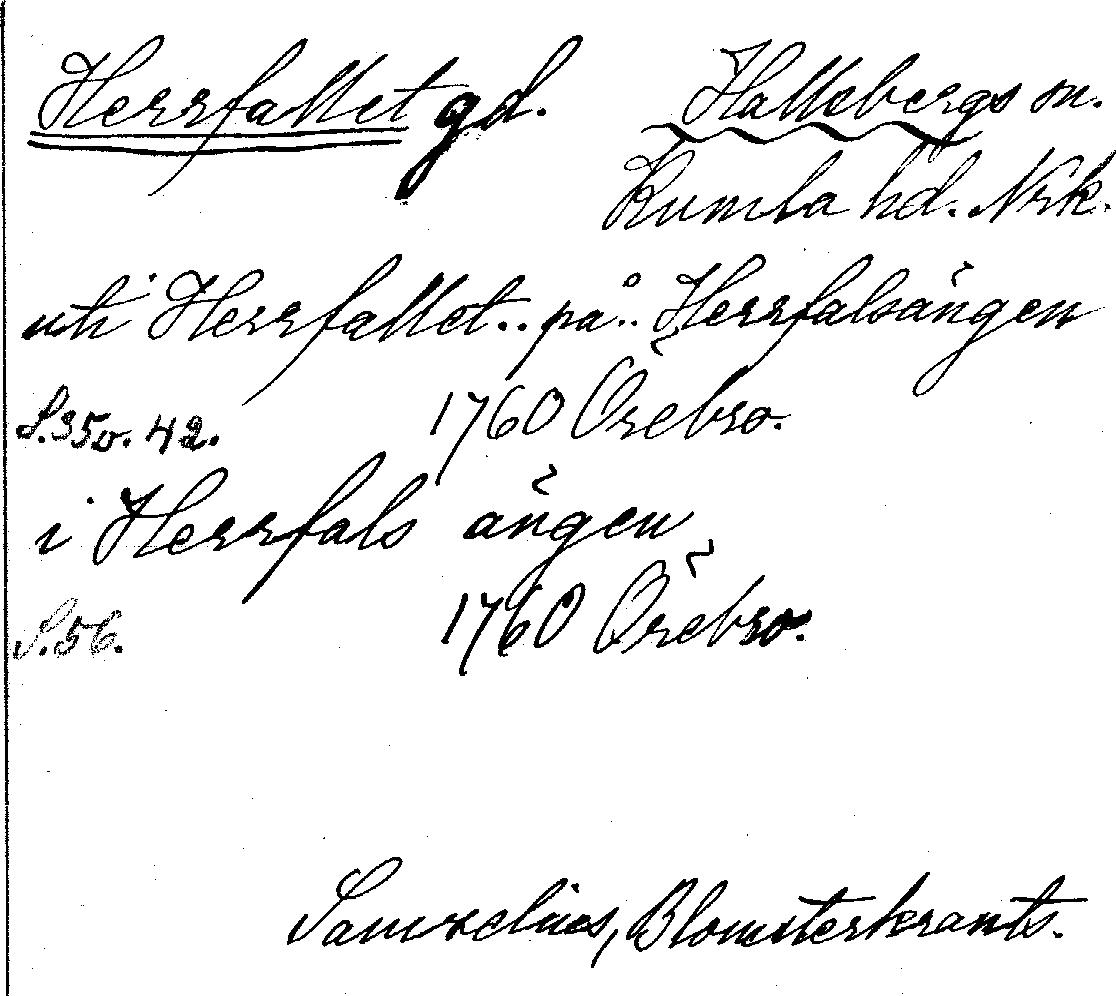 Herrfallet gd. Hallsbergs sn.
Kumla hd. Nrk.
uti Herrfallet.. på.. Herrfalsängen
S. 35 o. 42. 1760 Örebro.
i Herrfals ängen
S. 56. 1760 Örebro.
Samzelius, Blomsterkrants.